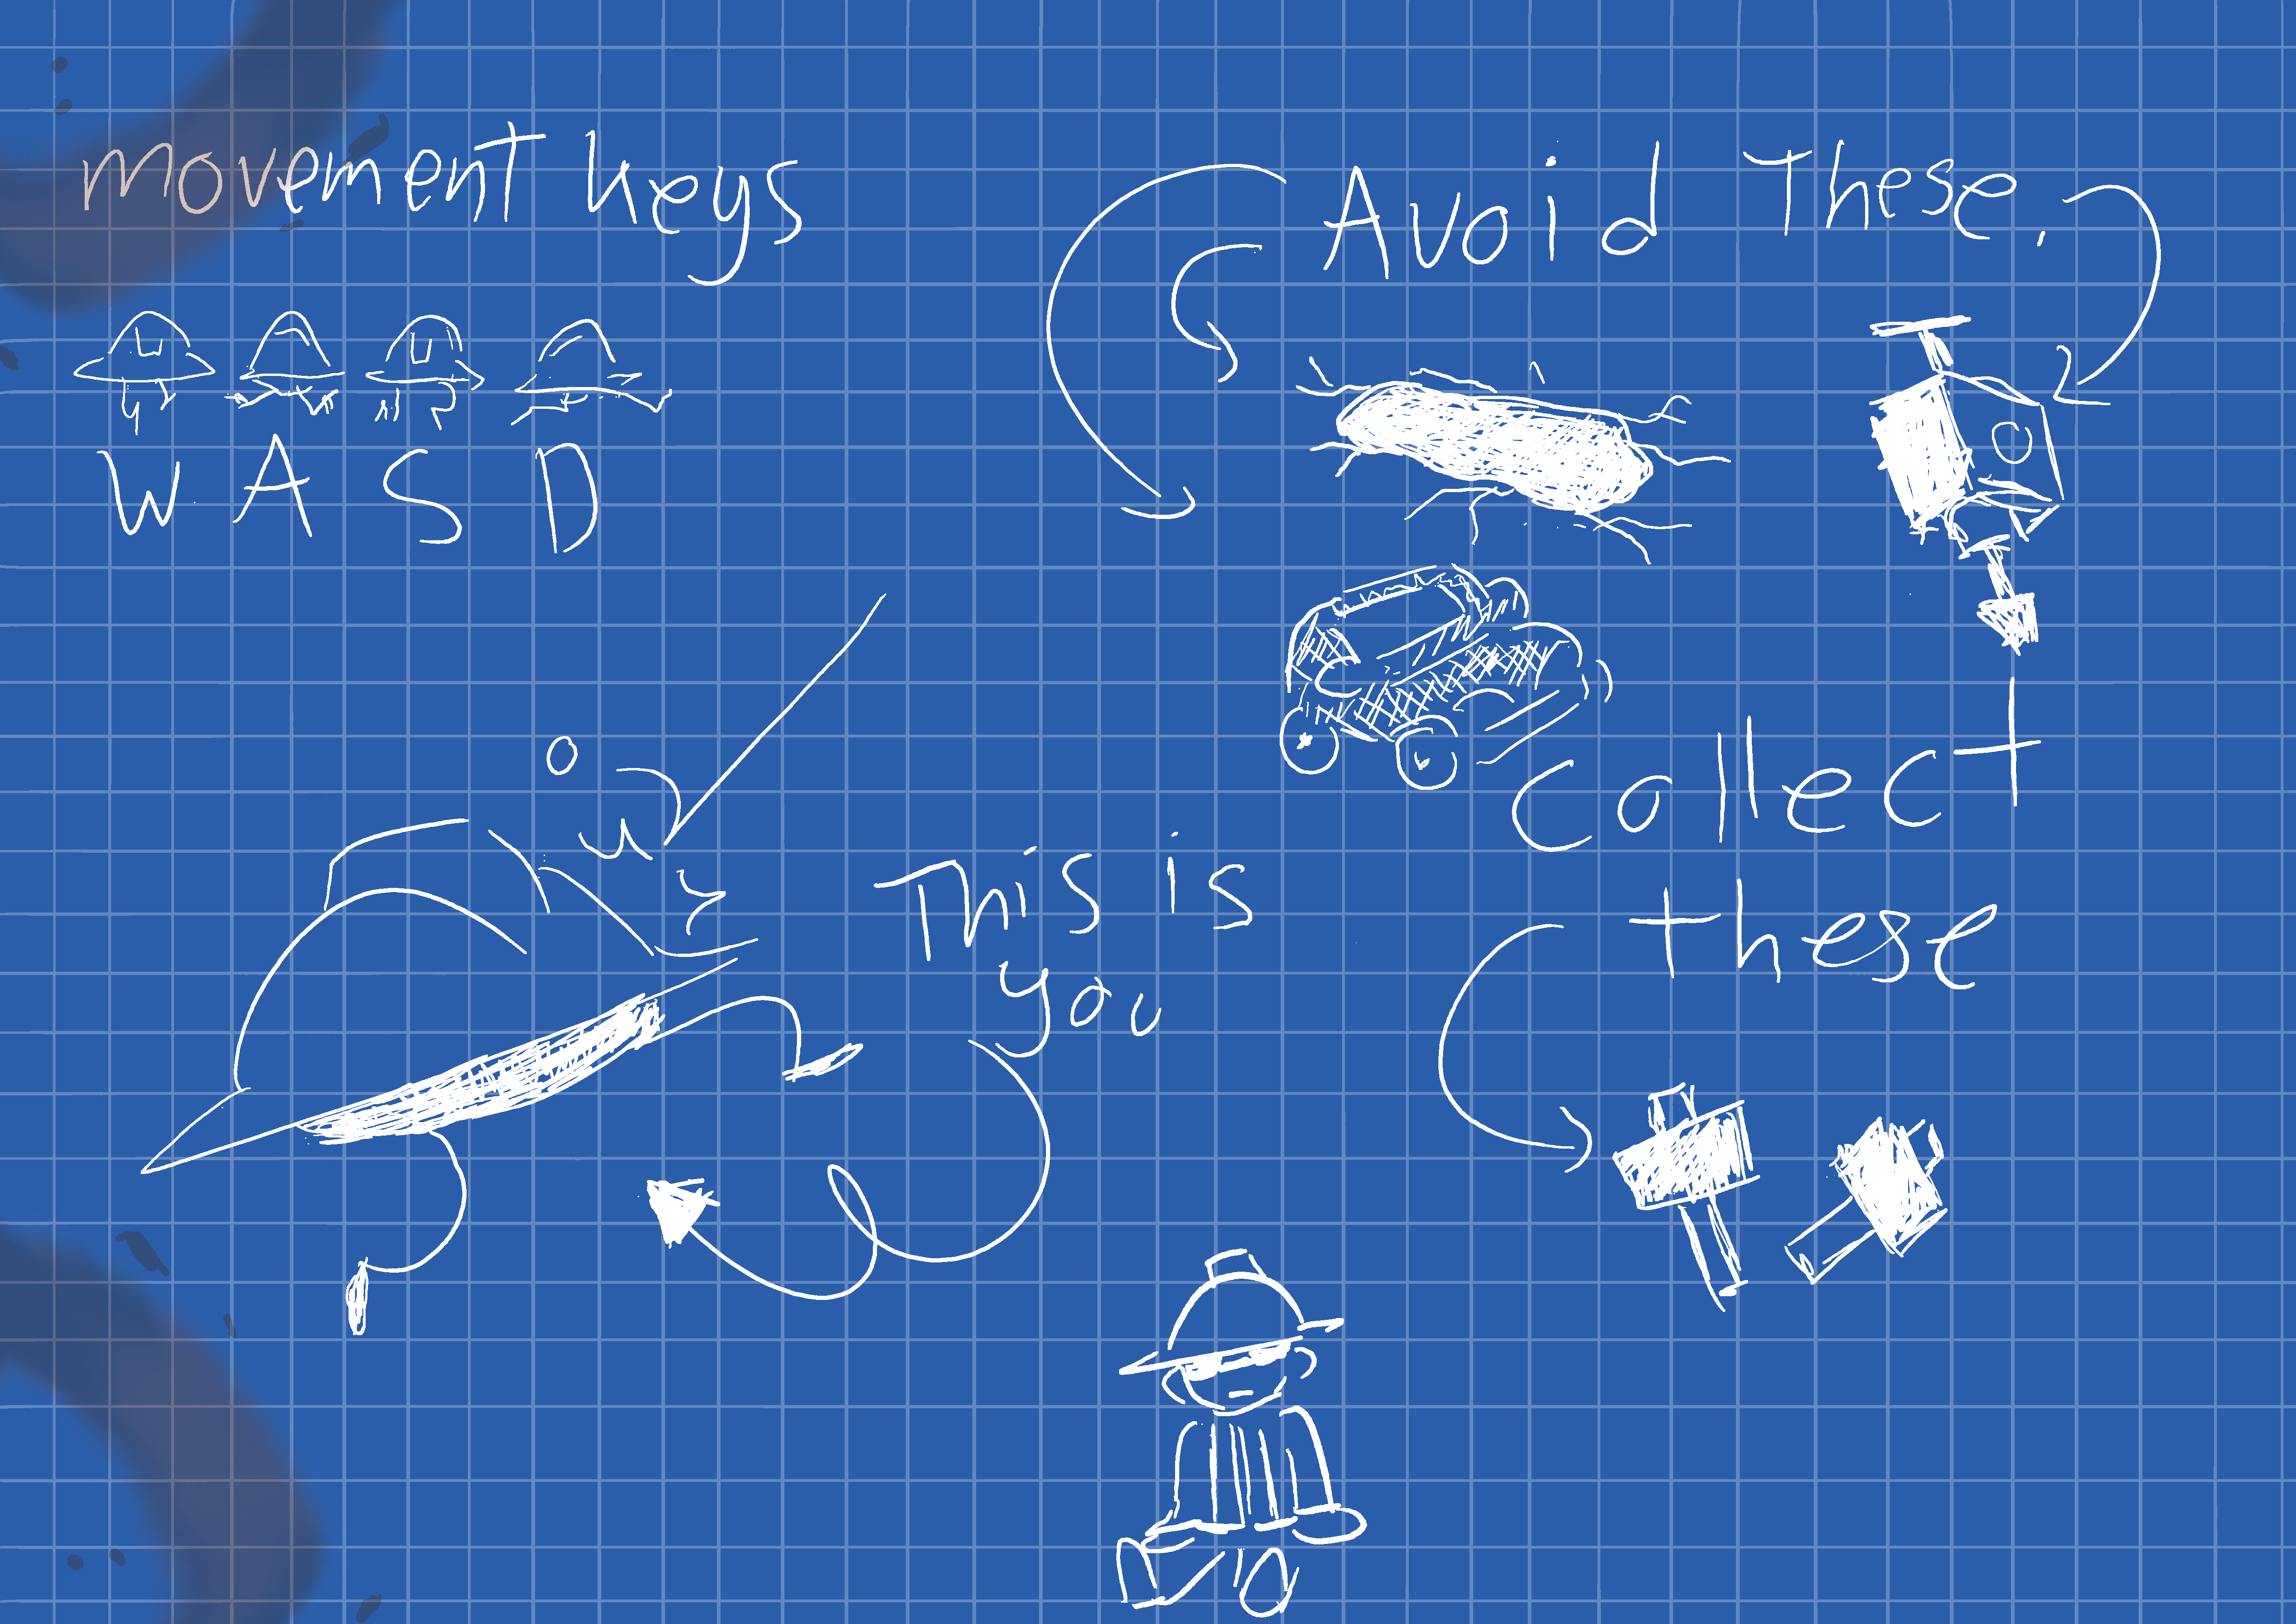 movement keys
W A S D
Avoid These.
This is
you
collect
these